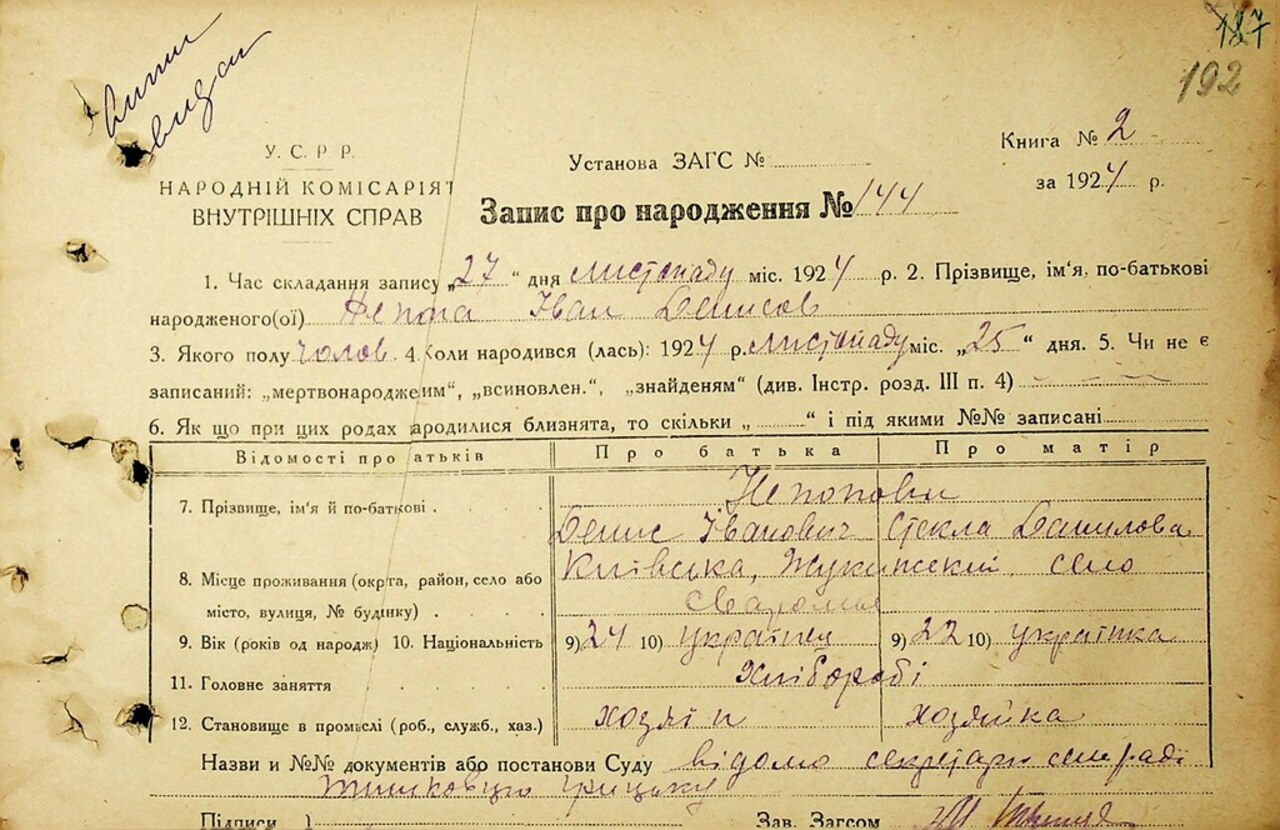 187
192
видан
У. С. Р. Р.
НАРОДНІЙ КОМІСАРІЯТ
ВНУТРІШНІХ СПРАВ
Установа ЗАГС №
Книга № 2
за 1924 р.
Запис про народження № 144
1. Час складання запису „27“ дня листопаду міс. 1924 р. 2. Прізвище, ім'я, по-батькові
народженого(ої) Непопа Іван Денисов
3. Якого полу чолов. 4. Коли народився (лась): 1924 р. листопаду міс. „25“ дня. 5. Чи не є
записаний: „мертвонароджеим“, „всиновлен.“, „знайденям“ (див. Інстр. розд. III п. 4)
6. Як що при цих родах ародилися близнята, то скільки „ “ і під якими №№ записані
Відомості про атьків Про батька Про матір
Непопови
7. Прізвище, ім'я й по-батькові Денис Іванович Стекла Данилова
8. Місце проживання (окрга, район, село або Київська, село
місто, вулиця, № будінку) Сваромля
9. Вік (років од народж) 10. Національність 9) 24 10) українец 9) 22 10) українка
11. Головне заняття Хлібороби
12. Становище в промислі (роб., служб., хаз.) хозяїн хозяйка
Назви и №№ документів або постанови Суду відомо секретарю сельраді
Підписи ) Зав. Загсом